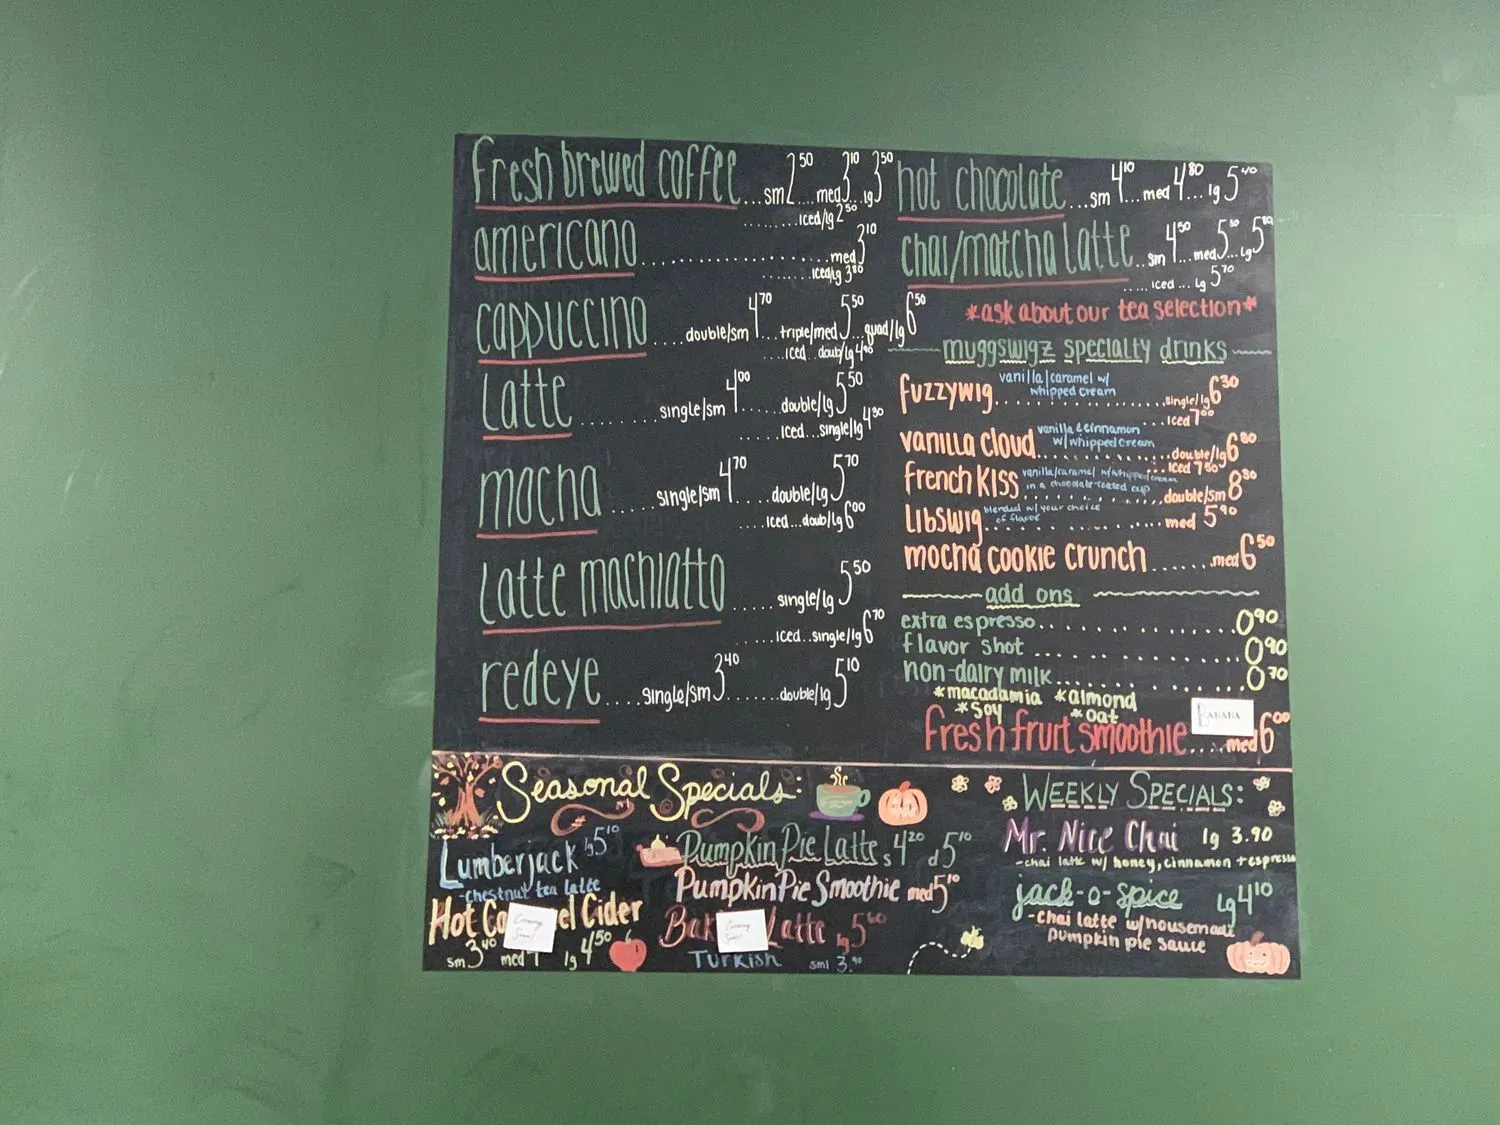 fresh brewed coffee ...sm 2.50 ...med 3.10 ..lg 3.50
........iced/lg 2.50
americano ....................med 3.10
.......iced/lg 3.80
cappuccino ....double/sm 4.70 ....triple/med 5.50 ...quad/lg 6.50
.....iced...doub/lg 4.90
Latte ........single/sm 4.00 ......double/lg 5.50
.....iced...single/lg 4.30
mocha .....single/sm 4.70 ....double/lg 5.70
....iced...doub/lg 6.00
Latte machiatto .....single/lg 5.50
.....iced..single/lg 6.70
redeye ....single/sm 3.40 .......double/lg 5.10
hot chocolate ...sm 4.10 ...med 4.80 ... lg 5.40
chai/matcha Latte ..sm 4.50 ...med 5.10 ..Lg 5.80
..... iced ... Lg 5.70
*ask about our tea selection*
muggswigz specialty drinks
fuzzywig vanilla/caramel w/
whipped cream
single/lg 6.30
...iced 7.00
vanilla cloud vanilla & cinnamon
w/whipped cream
double/lg 6.80
...iced 7.50
french kiss vanilla/caramel w/whipped cream
in a chocolate-coated cup
double/sm 8.30
Libswig blended w/ your choice
of flavor
med 5.90
mocha cookie crunch .......med 6.50
add ons
extra espresso 0.90
flavor shot 0.90
non-dairy milk 0.70
*macadamia *almond
*soy *oat
Banana
fresh fruit smoothie....med 6.00
Seasonal Specials:
Lumberjack lg 5.10
-chestnut tea latte
Hot Ca el Cider
Coming Soon!
sm 3.40 med lg 4.50
Pumpkin Pie Latte s 4.20 d 5.10
Pumpkin Pie Smoothie med 5.10
Bak Latte lg 5.60
Coming Soon!
Turkish sml 3.90
Weekly Specials:
Mr. Nice Chai lg 3.90
-chai latte w/ honey, cinnamon + espresso
jack-o-spice Lg 4.10
-chai latte w/housemade
pumpkin pie sauce